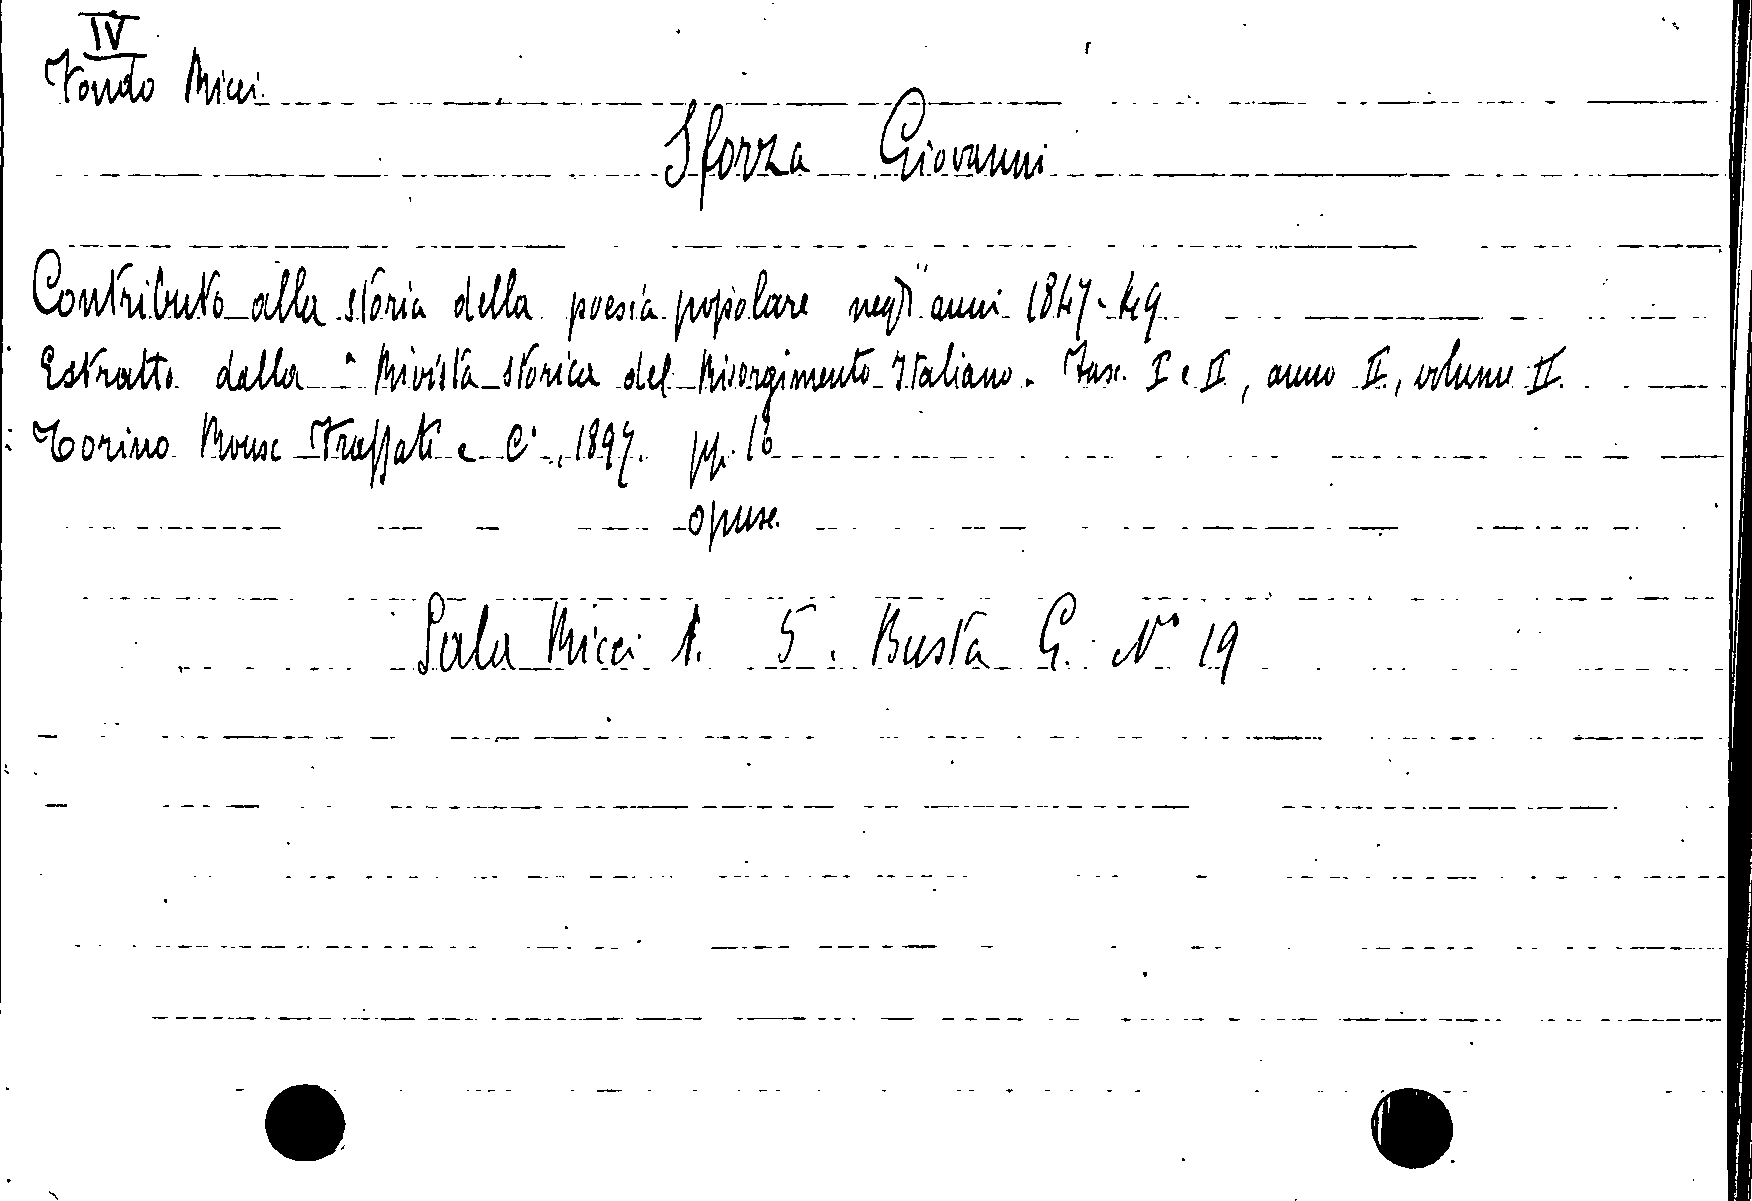 IV
Fondo Ricci
Sforza Giovanni
Contributo alla storia della poesia popolare negli anni 1847-49
Estratto dalla "Rivista storica del Risorgimento Italiano. Fasc. I e II, anno II, volume II.
Torino Roux Frassati e Cº, 1897. pp. 16
opusc.
Sala Ricci 1. 5. Busta G. Nº 19